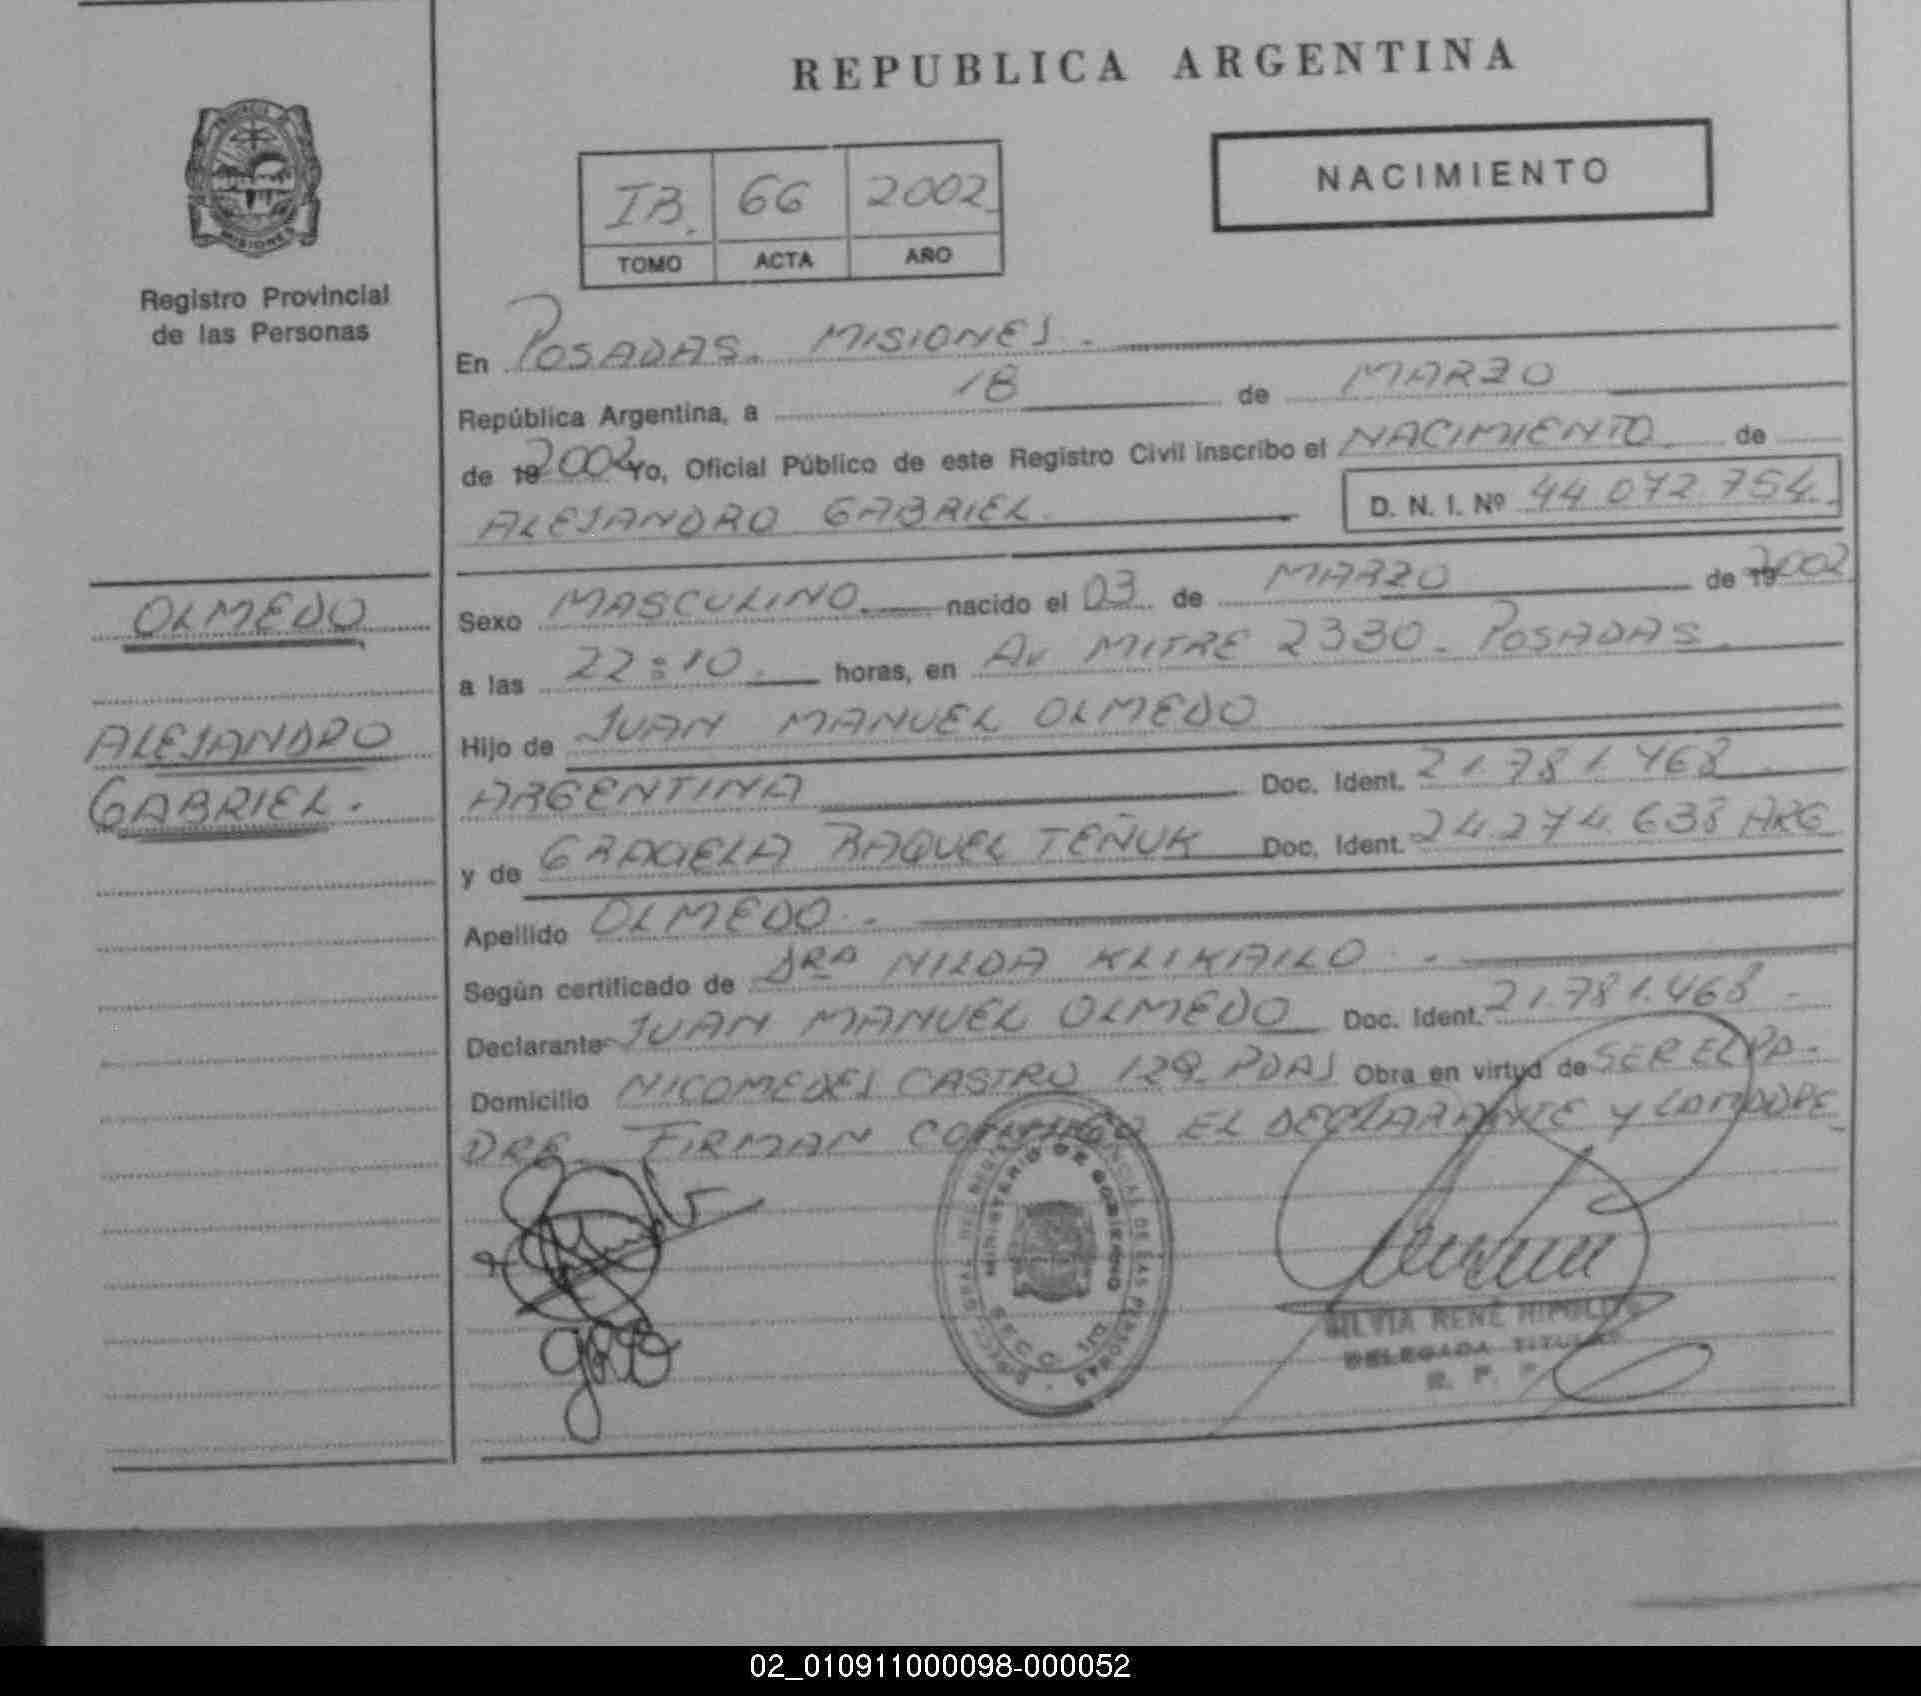 REPUBLICA ARGENTINA
NACIMIENTO
IB. 66 2002
TOMO ACTA AÑO
MISIONES
Registro Provincial
de las Personas
En POSADAS. MISIONES.
República Argentina, a 18 de MARZO
de 19 2002 Yo, Oficial Público de este Registro Civil inscribo el NACIMIENTO de
ALEJANDRO GABRIEL. D. N. I. Nº 44.072.754.
OLMEDO
ALEJANDRO
GABRIEL.
Sexo MASCULINO nacido el 03 de MARZO de 19 2002
a las 22:10. horas, en AV MITRE 2330. POSADAS.
Hijo de JUAN MANUEL OLMEDO
ARGENTINA Doc. Ident. 21.781.468
y de GRACIELA RAQUEL TEÑUK Doc. Ident. 24.274.638 ARG
Apellido OLMEDO.-
Según certificado de DRA NILDA KLIKAILO.-
Declarante JUAN MANUEL OLMEDO Doc. Ident. 21.781.468-
Domicilio NICOMEDES CASTRO 129. PDAS Obra en virtud de SER EL PA-
DRE. FIRMAN CONMIGO EL DECLARANTE Y LA MADRE
MINISTERIO DE GOBIERNO
SILVIA RENÉ HIPOLITO
DELEGADA TITULAR
R. P. P.
02_010911000098-000052